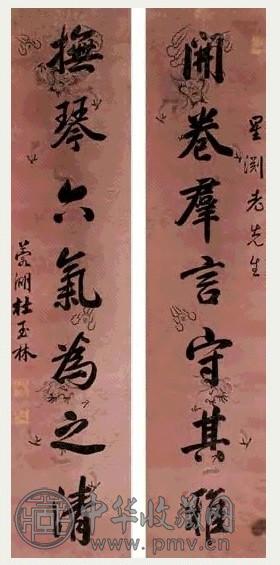 星澍老先生
開卷群言守其雅
撫琴六氣為之清
蓉湖杜玉林
中华收藏网
www.pmv.cn